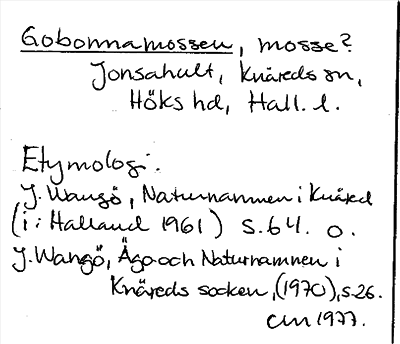 Gobonnamossen, mosse?
Jonsahult, Knäreds sn,
Höks hd, Hall. l.
Etymologi.
J. Wangö, Naturnamnen i Knäred
(i: Halland 1961) s. 64. o.
J. Wangö, Ägo- och Naturnamnen i
Knäreds socken, (1970), s. 26.
CLM 1977.